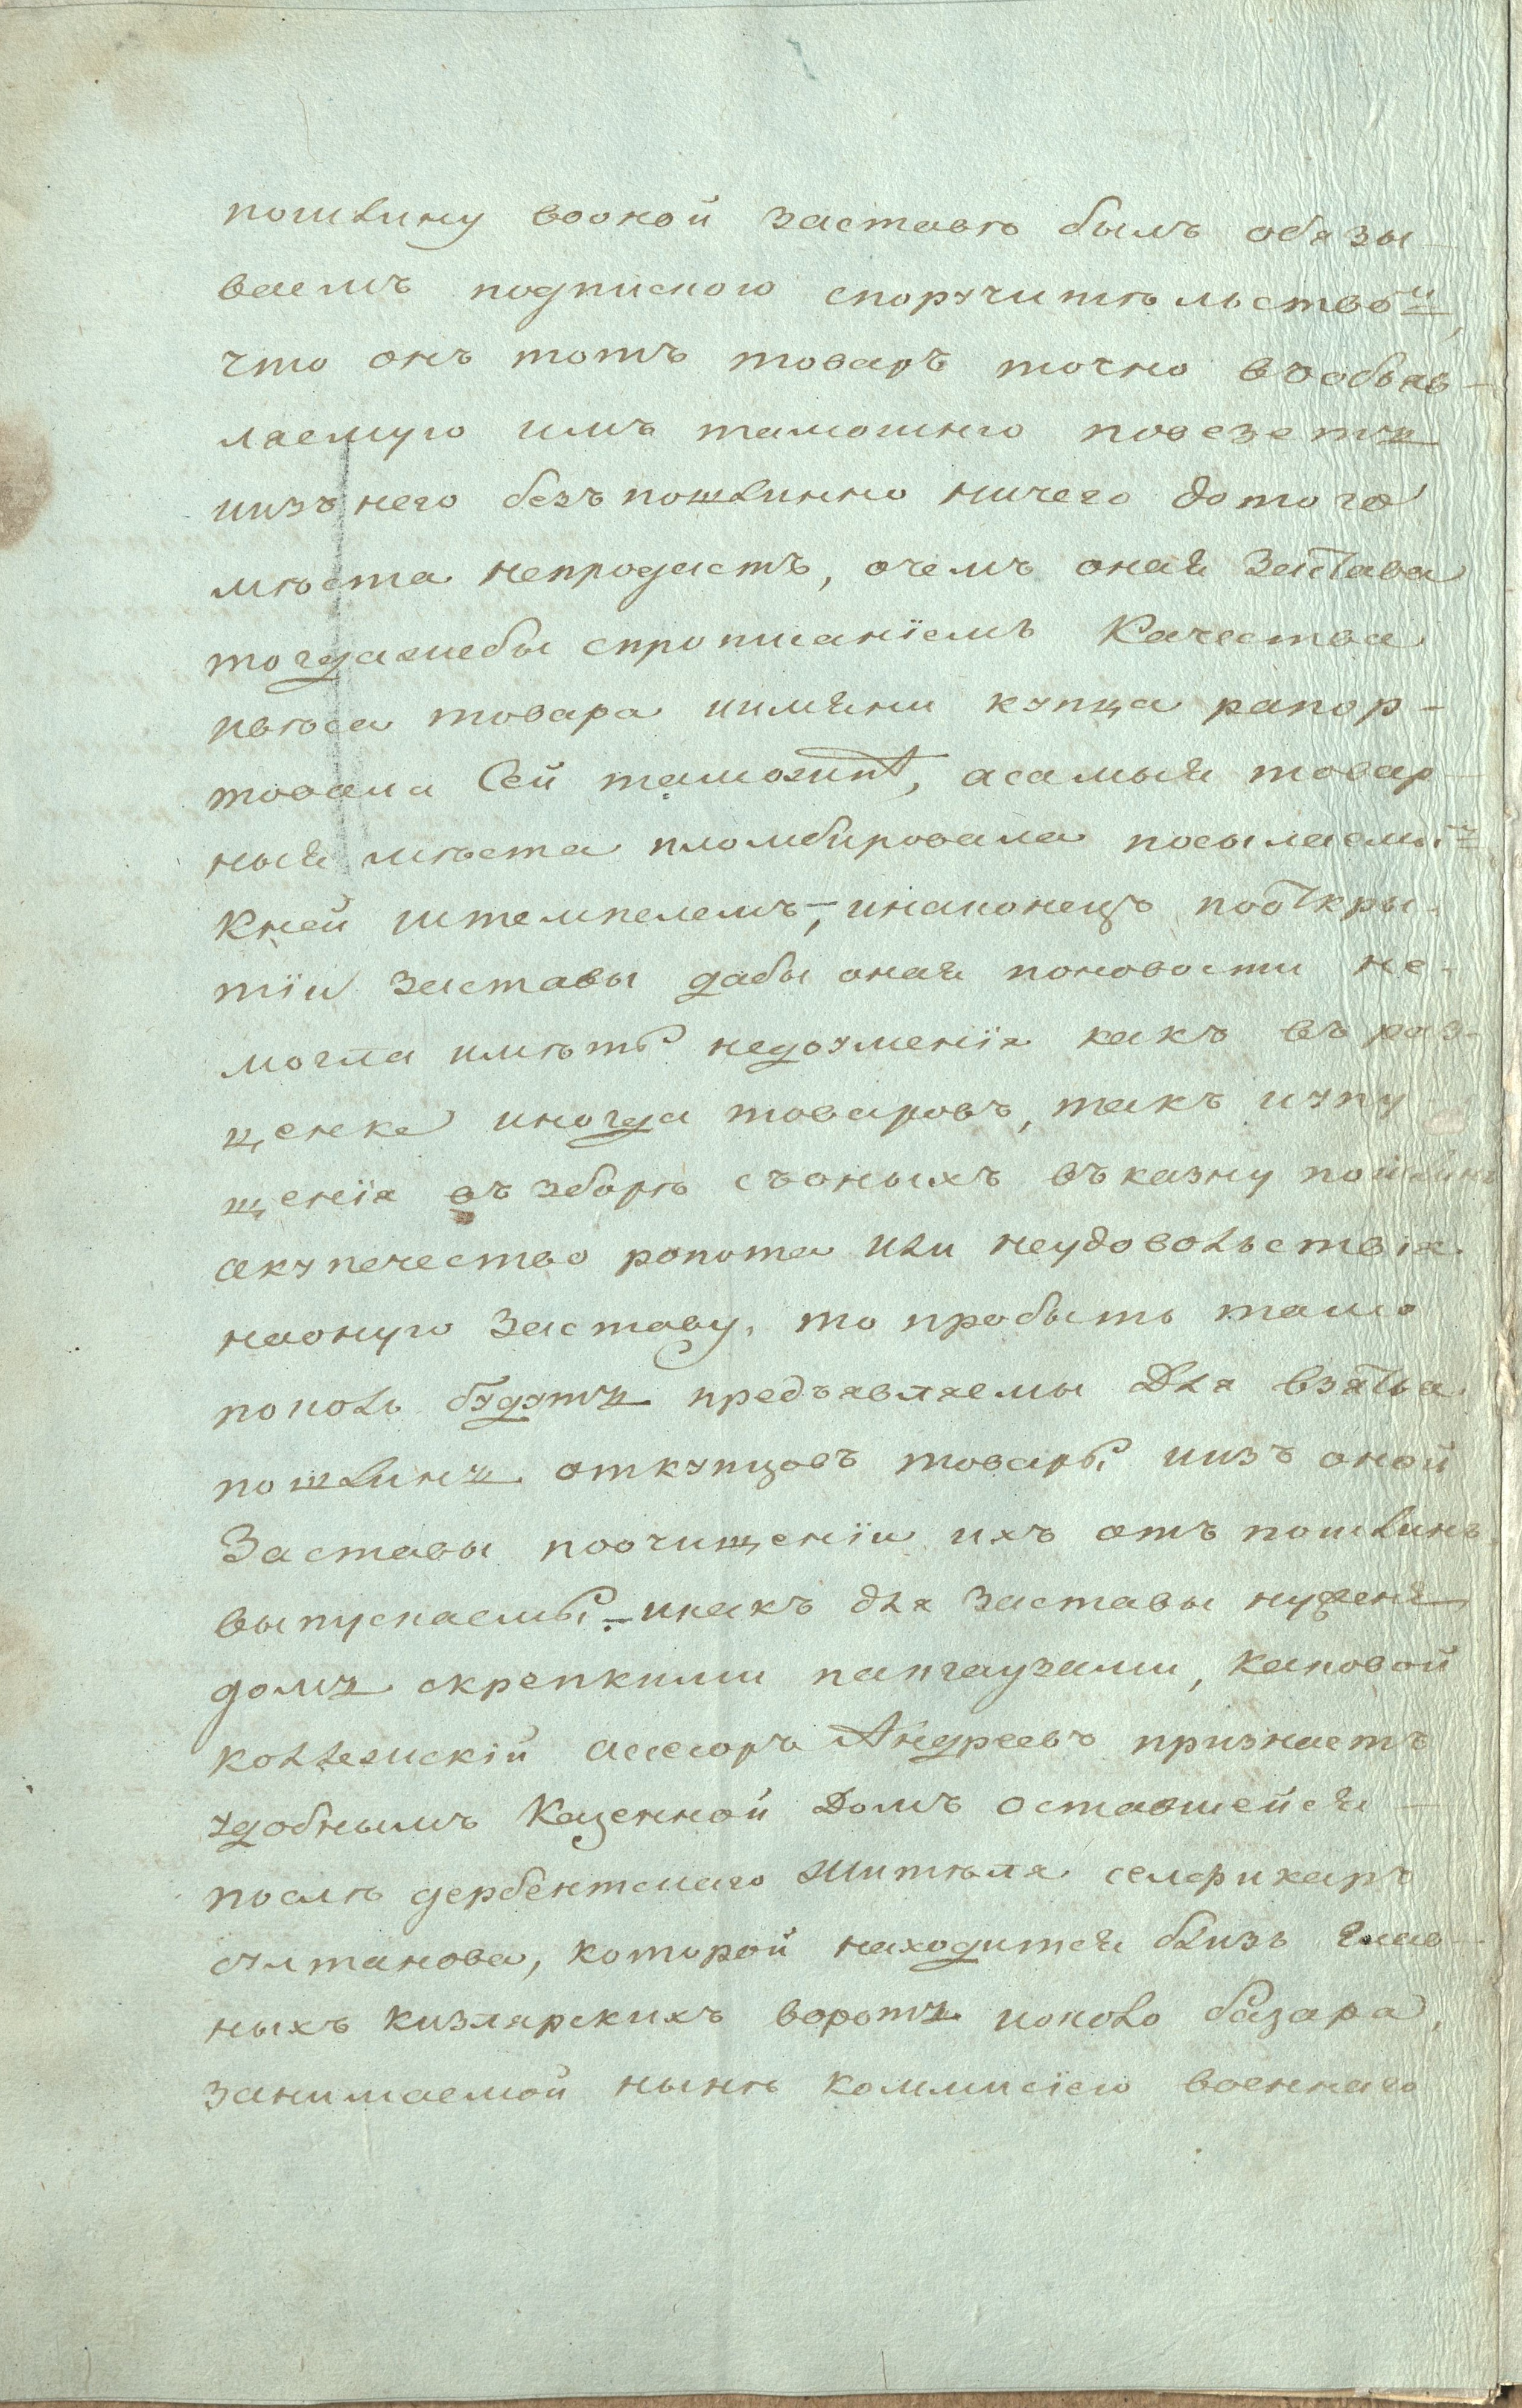 пошлину воной заставѣ былъ обязы-
ваемъ подпискою споручительствомъ,
что онъ тотъ товаръ точно въ объяв-
ляемую имъ таможню повезетъ
иизъ него безъ пошлинно ничего дотого
мѣста непродастъ, очемъ оная застава
тогдажебы спрописанїемъ Качества
ивѣса товара иимяни купца рапор-
товала Сей таможнѣ, асамыя товар-
ныя мѣста пломбировала посылаемымъ
Кней штемпелемъ, инаконецъ пооткры-
тїи заставы дабы оная поновости не-
могла имѣть недоуменїя какъ въ раз-
ценке иногда товаровъ, такъ иупу-
щенїя въ зборѣ съоныхъ въ казну пошлинъ
акупечество ропота или неудовольствїя
наоную Заставу, то пробыть тамо
поколь будутъ предъявляемы Для взятья
пошлинъ откупцовъ товары иизъ оной
Заставы поочищенїи ихъ отъ пошлинъ
выпускаемы. икакъ для заставы нуженъ
домъ скрепкими пакгаузами, каковой
коллежскїй ассесоръ Андреевъ признаетъ
удобнымъ Казенной Домъ оставшейся
послѣ дербентскаго жителя селфикаръ
султанова, которой находится близъ глав-
ныхъ кизлярскихъ воротъ иоколо базара,
занимаемой нынѣ коммисїею военнаго